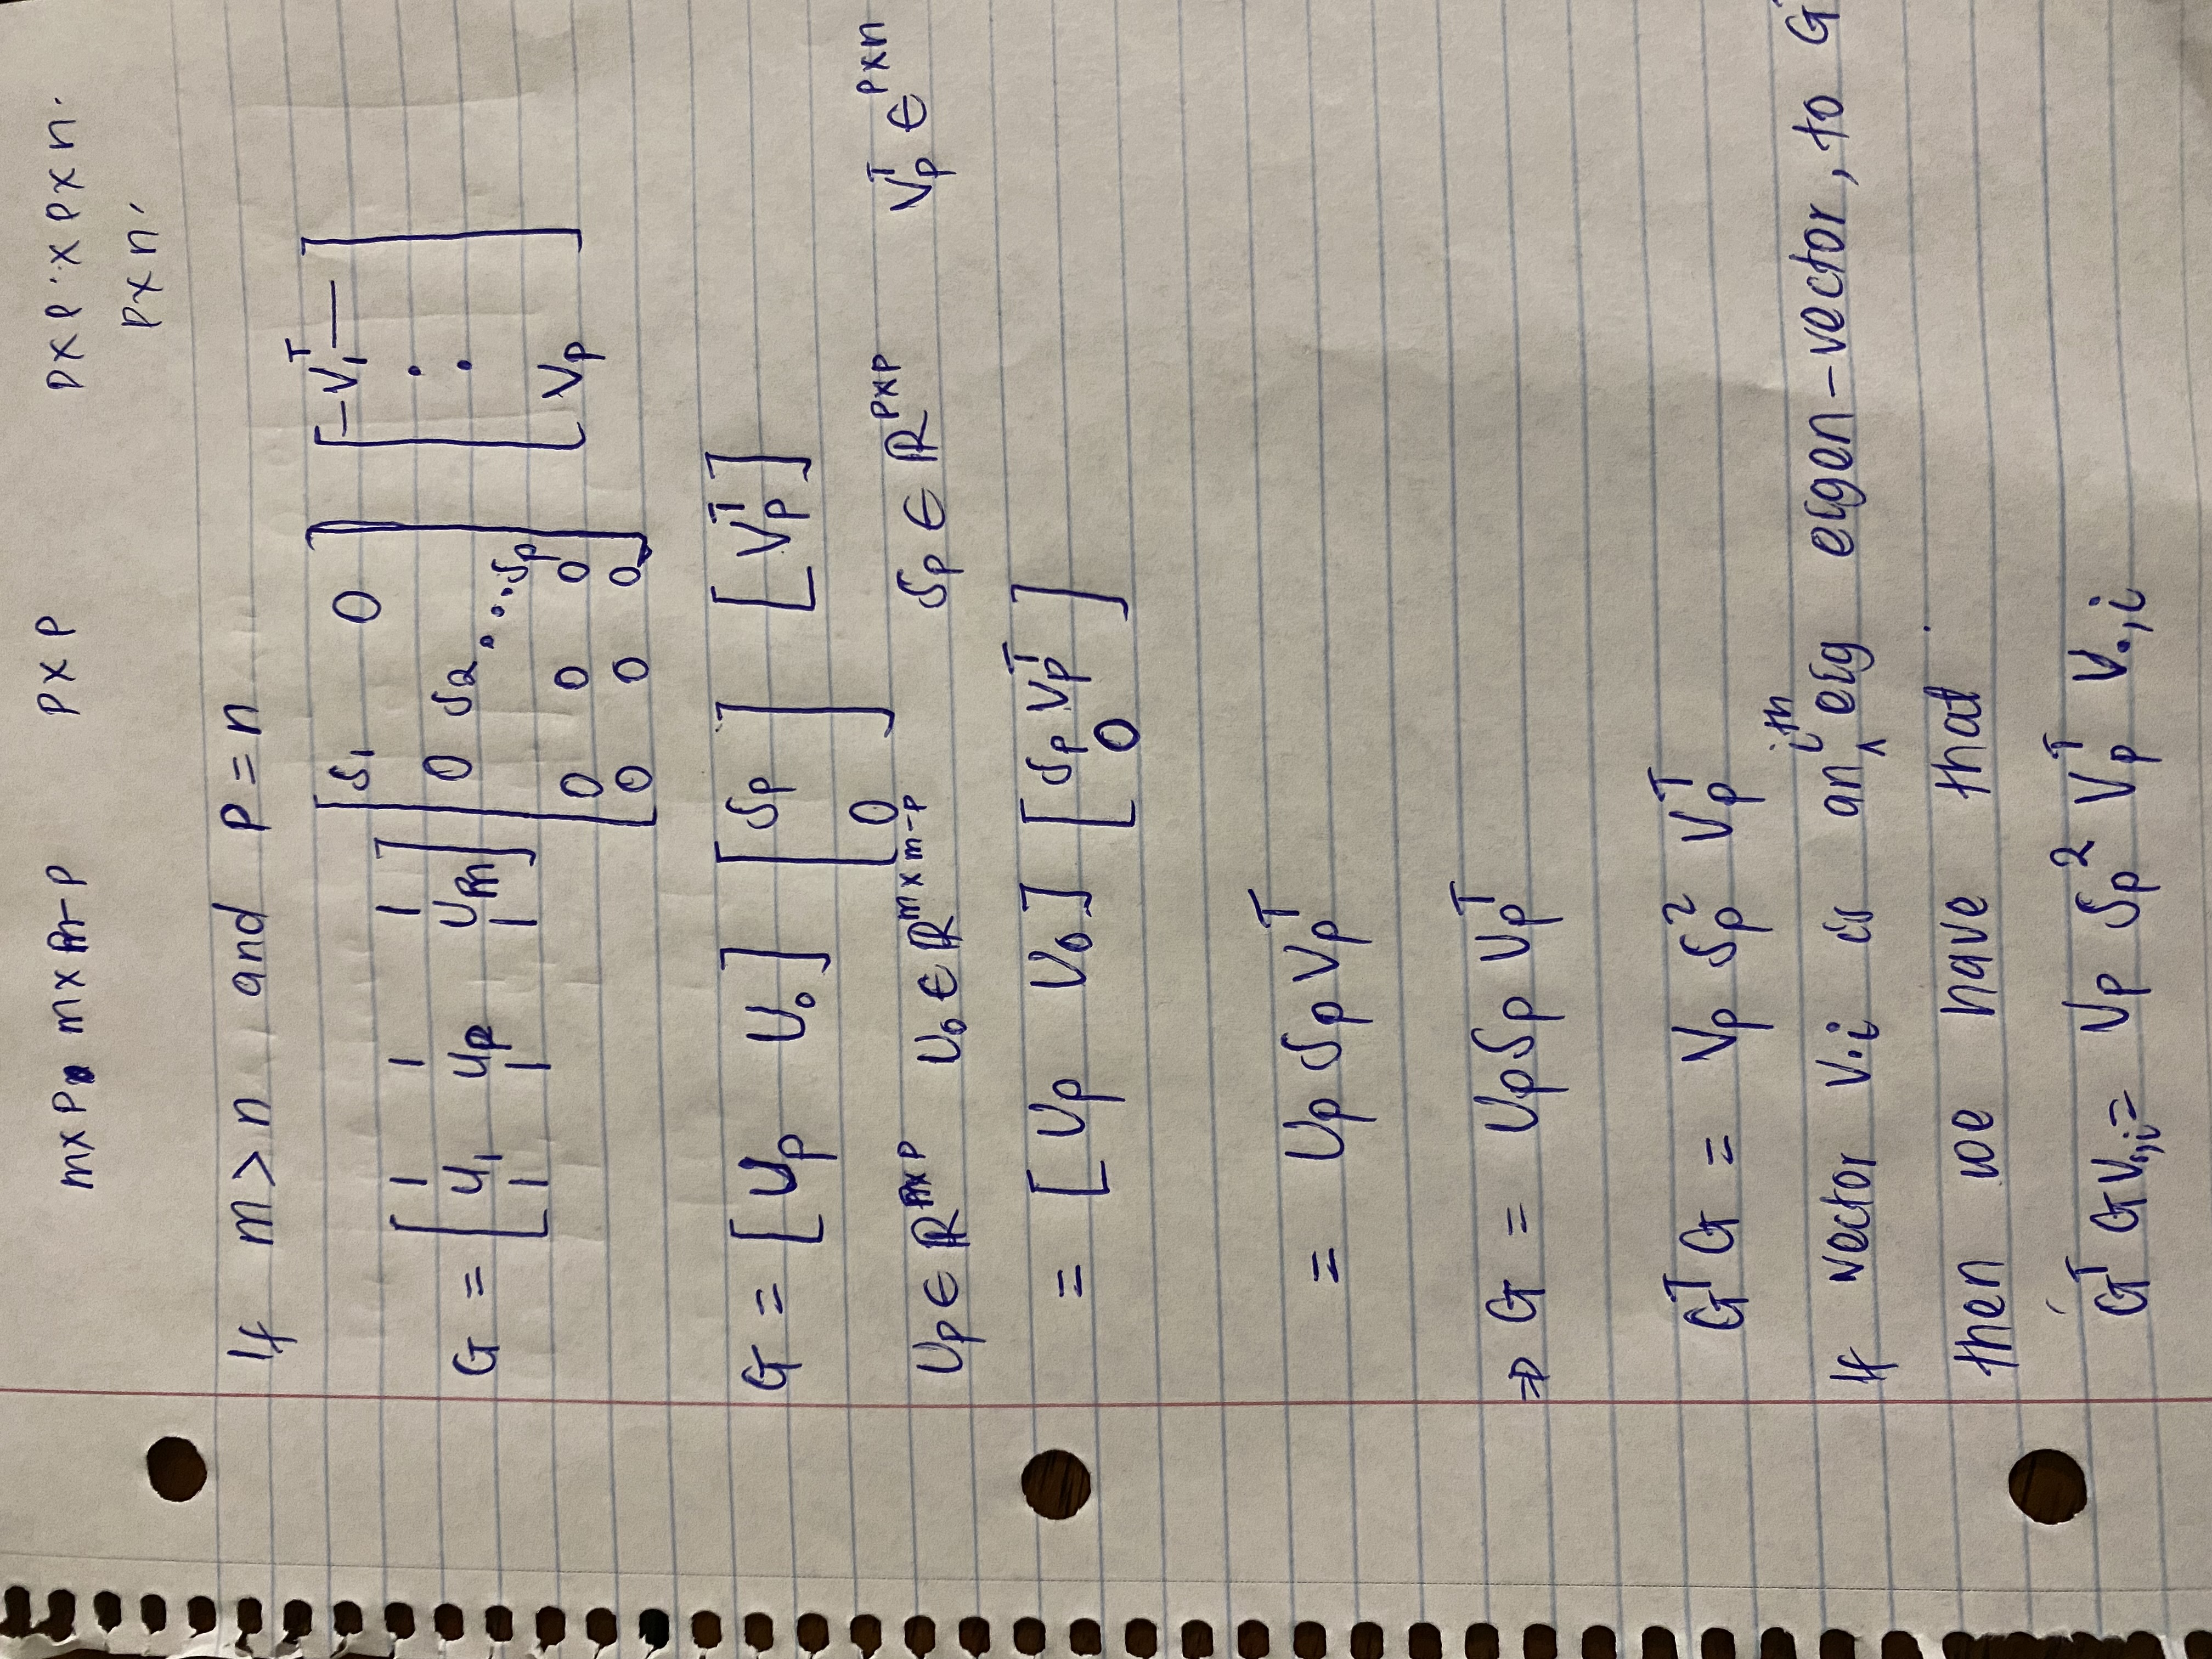 m×p m×m-p p×p p×p × p×n.
p×n.
If m > n and p = n
G = [ | | | ; u₁ u₂ uₘ ; | | | ] [ S₁ 0 ; 0 S₂ ⋱ Sₚ ; 0 0 0 ; 0 0 0 ] [ —V₁ᵀ— ; · ; · ; Vₚ ]
G = [ Uₚ U₀ ] [ Sₚ ; 0 ] [ Vₚᵀ ]
Uₚ ∈ ℝ^{m×p} U₀ ∈ ℝ^{m×m-p} Sₚ ∈ ℝ^{p×p} Vₚᵀ ∈^{p×n}
= [ Uₚ U₀ ] [ Sₚ Vₚᵀ ; 0 ]
= Uₚ Sₚ Vₚᵀ
⇒ G = Uₚ Sₚ Vₚᵀ
Gᵀ G = Vₚ Sₚ² Vₚᵀ
If vector V.i is an ith eig eigen-vector, to G
then we have that
Gᵀ G V.,i = Vₚ Sₚ² Vₚᵀ V.,i